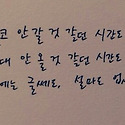 코 안 갈 것 같던 시간도
대 안 올 것 같던 시간도
에는 글쎄요, 설마도 없